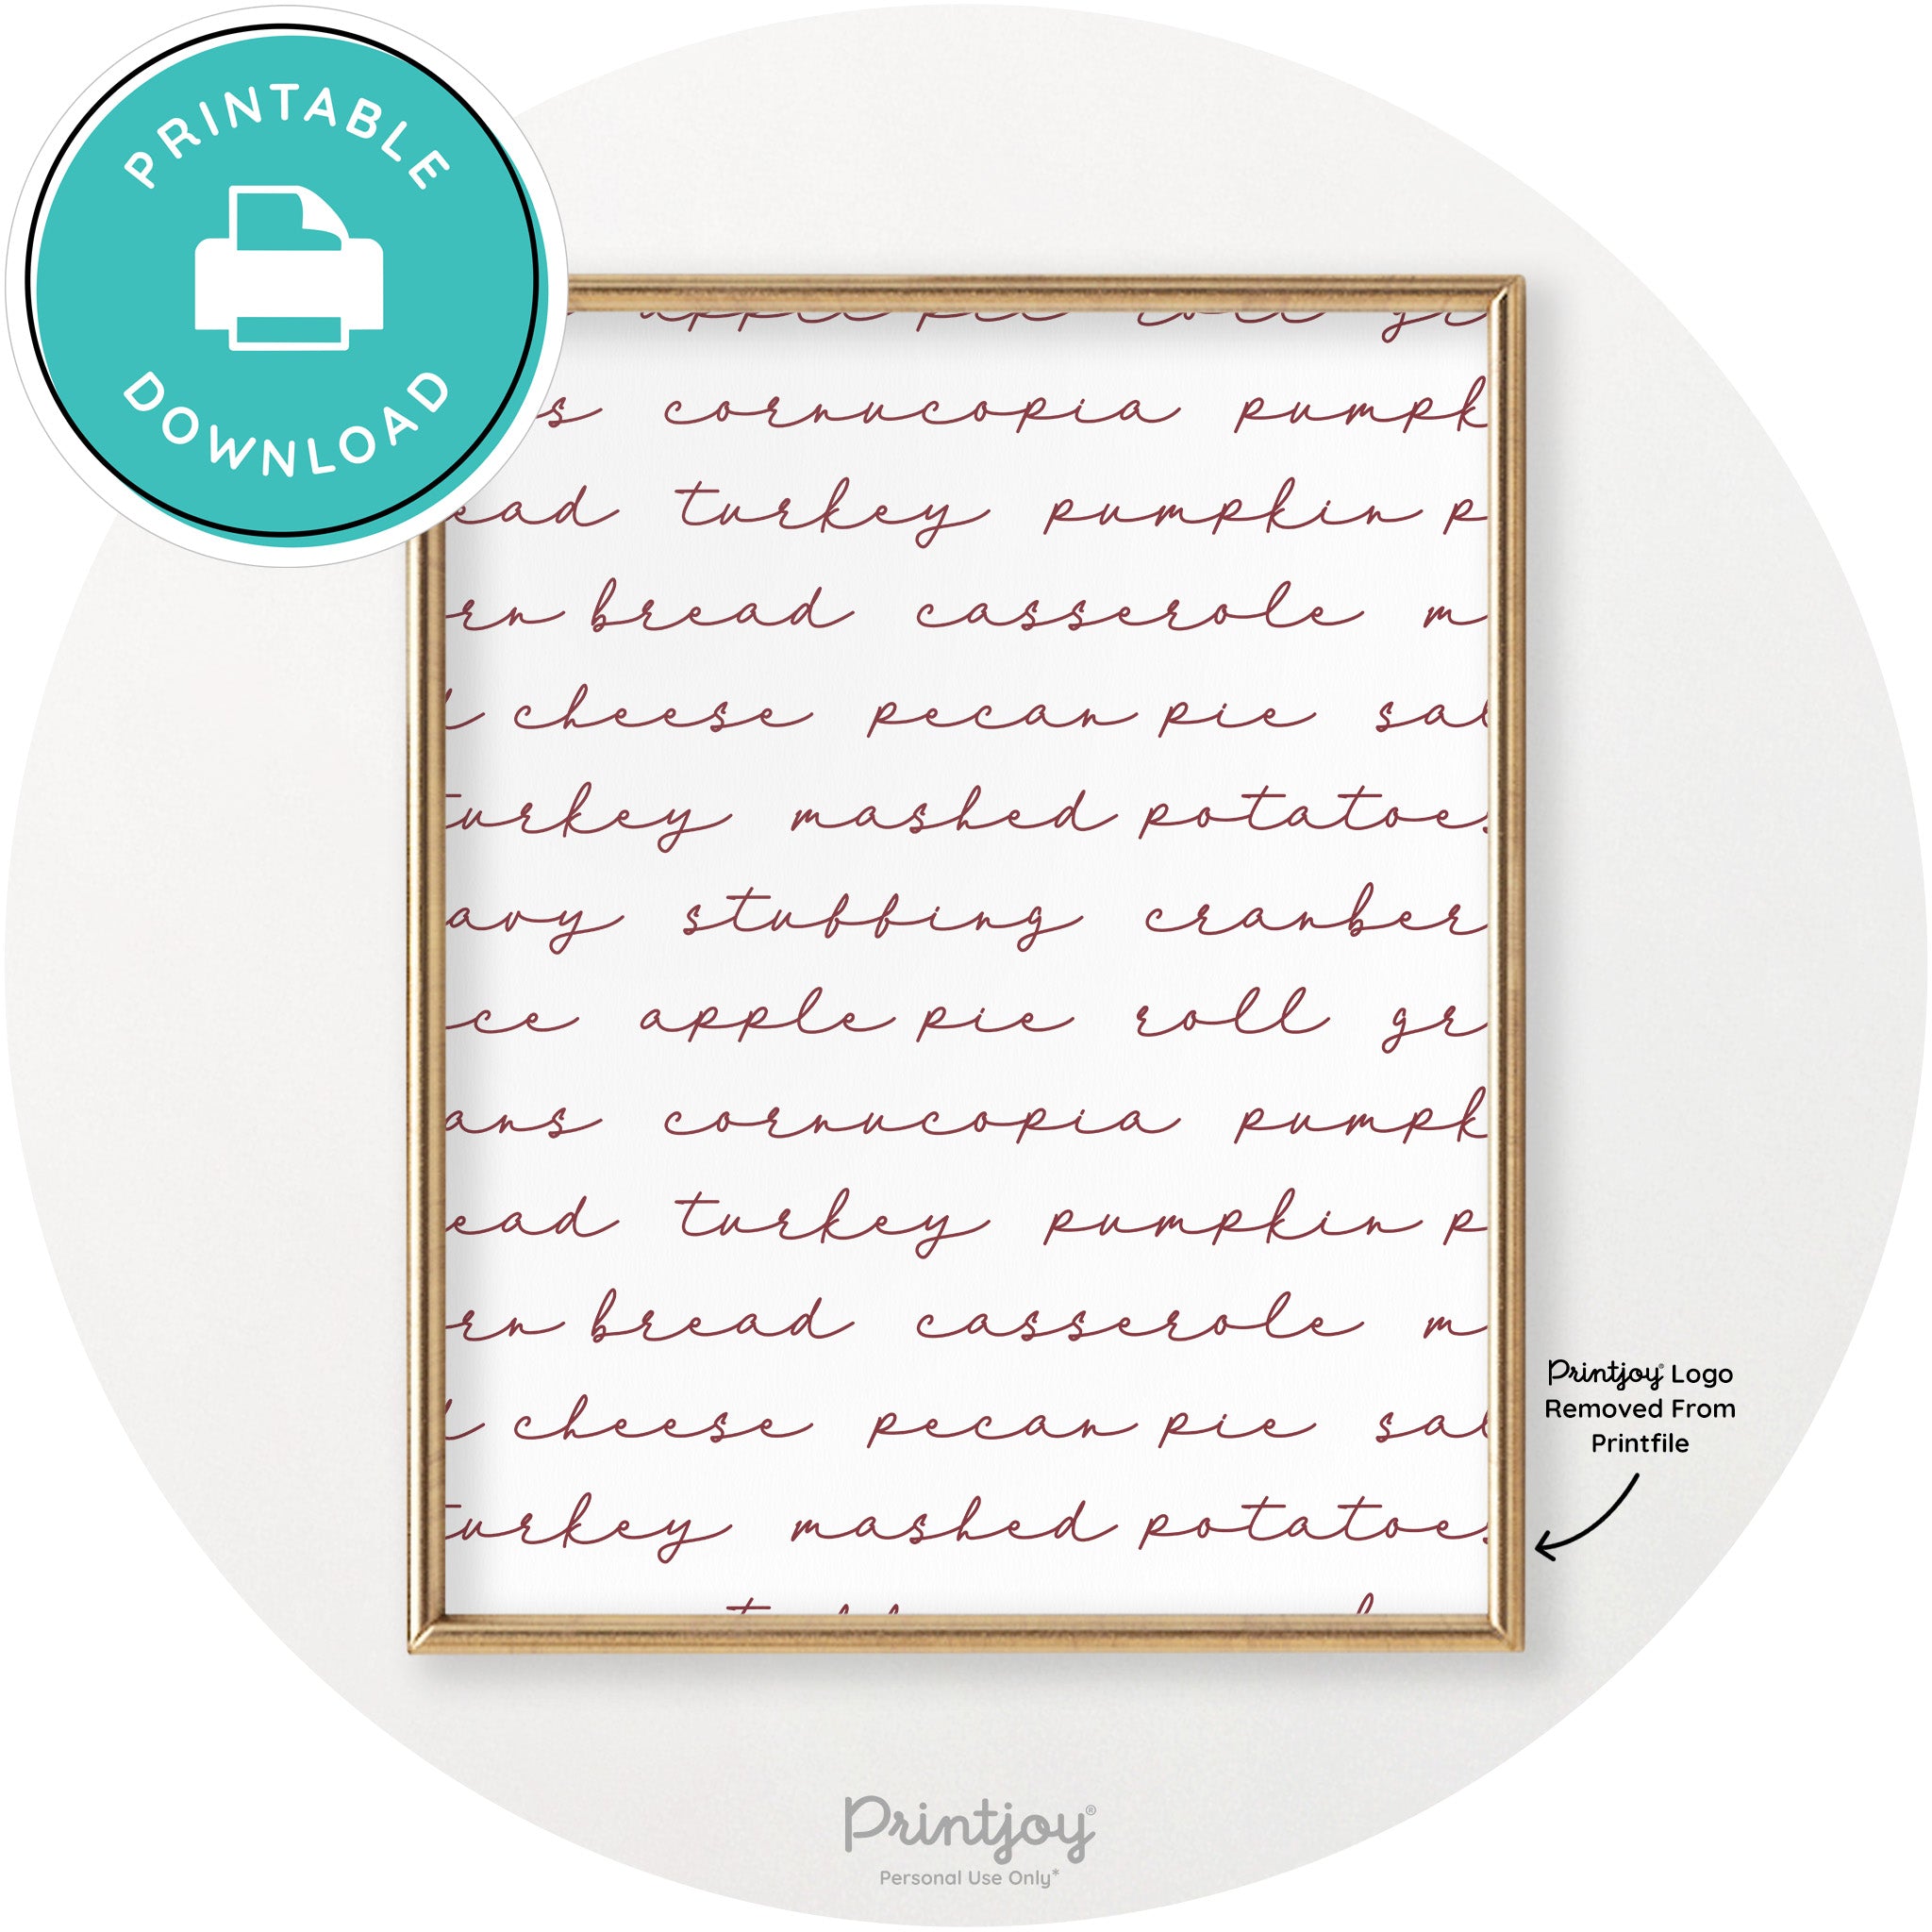 PRINTABLE
DOWNLOAD
apple pie roll gr
s cornucopia pumpk
ead turkey pumpkin p
rn bread casserole m
cheese pecan pie sal
turkey mashed potatoes
avy stuffing cranber
ce apple pie roll gr
ans cornucopia pumpk
ead turkey pumpkin p
rn bread casserole m
cheese pecan pie sal
turkey mashed potatoes
Printjoy® Logo
Removed From
Printfile
Printjoy®
Personal Use Only*